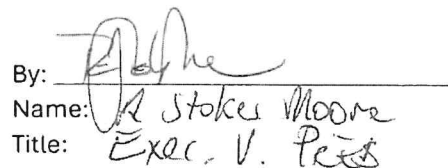 By:
Name: R Stokes Moore
Title: Exec. V. Pres